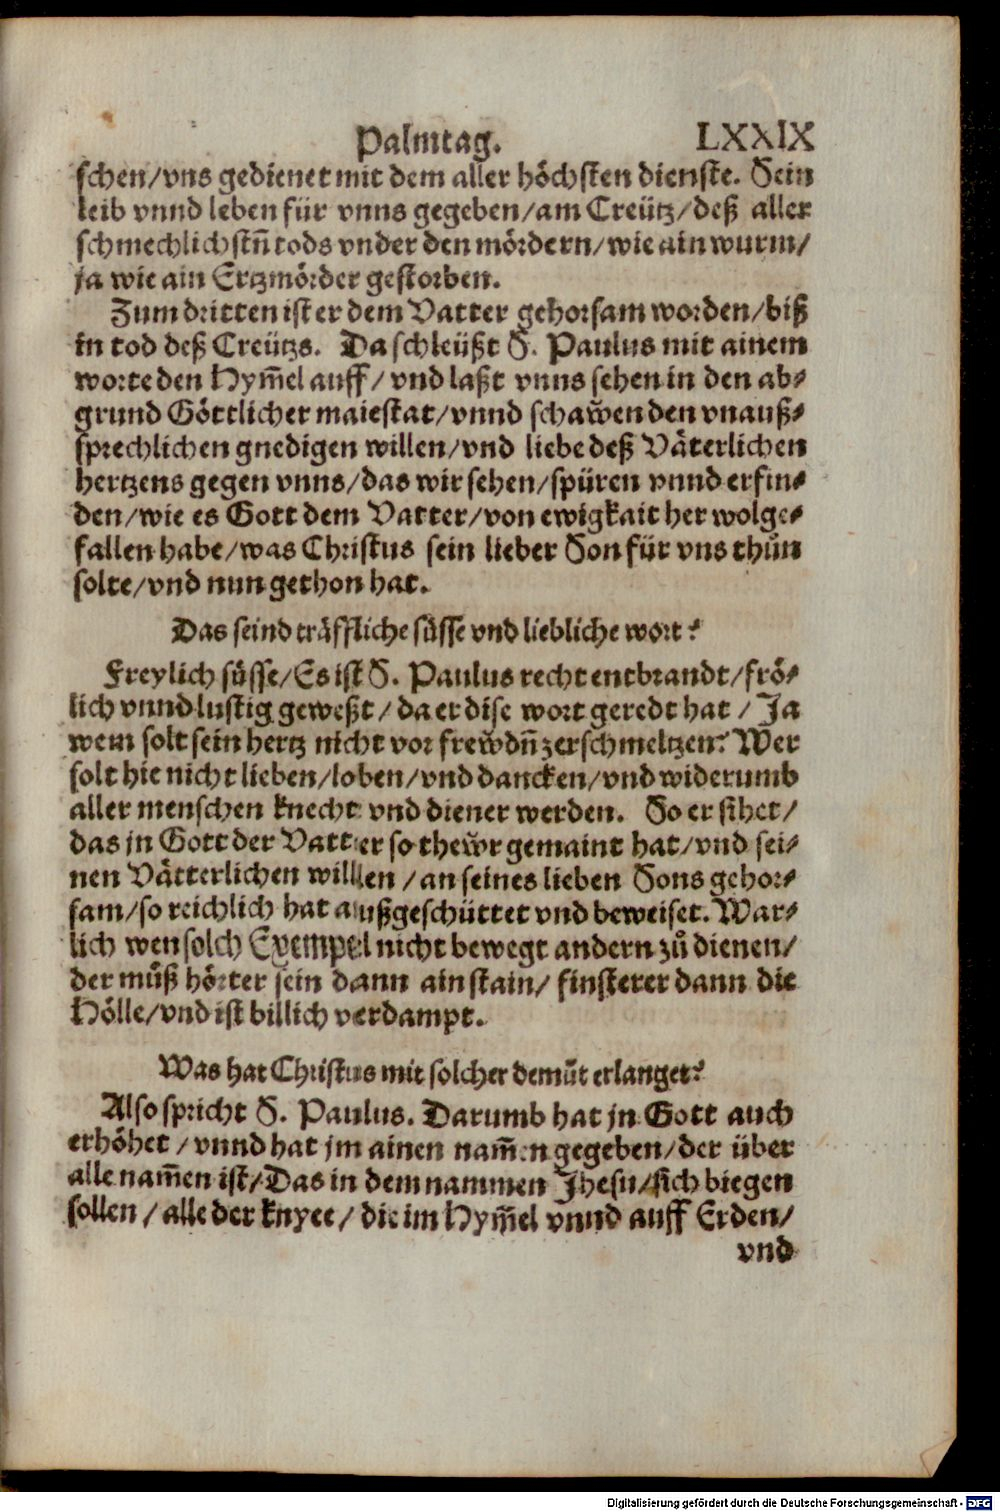 Palmtag. LXXIX
schen/vns gedienet mit dem aller höchsten dienste. Sein
leib vnnd leben für vnns gegeben/am Creütz/deß aller
schmechlichstn̄ tods vnder den mördern/wie ain wurm/
ja wie ain Ertzmörder gestorben.
Zum dritten ist er dem Vatter gehorsam worden/biß
in tod deß Creützs. Da schleüßt S. Paulus mit ainem
worte den Hym̄el auff/vnd laßt vnns sehen in den ab⸗
grund Göttlicher maiestat/vnnd schawen den vnauß⸗
sprechlichen gnedigen willen/vnd liebe deß Väterlichen
hertzens gegen vnns/das wir sehen/spüren vnnd erfin⸗
den/wie es Gott dem Vatter/von ewigkait her wolge⸗
fallen habe/was Christus sein lieber Son für vns thůn
solte/vnd nun gethon hat.
Das seind träffliche süsse vnd liebliche wort?
Freylich süsse/Es ist S. Paulus recht entbrandt/frö⸗
lich vnnd lustig geweßt/da er dise wort geredt hat/Ja
wem solt sein hertz nicht vor frewdn̄ zerschmeltzen? Wer
solt hie nicht lieben/loben/vnd dancken/vnd widerumb
aller menschen knecht vnd diener werden. So er sihet/
das jn Gott der Vatter so thewr gemaint hat/vnd sei⸗
nen Vätterlichen willen/an seines lieben Sons gehor⸗
sam/so reichlich hat außgeschüttet vnd beweiset. War⸗
lich wen solch Exempel nicht bewegt andern zů dienen/
der můß hörter sein dann ain stain/finsterer dann die
Hölle/vnd ist billich verdampt.
Was hat Christus mit solcher demůt erlanget?
Also spricht S. Paulus. Darumb hat jn Gott auch
erhöhet/vnnd hat jm ainen nam̄en gegeben/der über
alle nam̄en ist/Das in dem nammen Jhesu/sich biegen
sollen/alle der knyee/die im Hym̄el vnnd auff Erden/
vnd
Digitalisierung gefördert durch die Deutsche Forschungsgemeinschaft - DFG